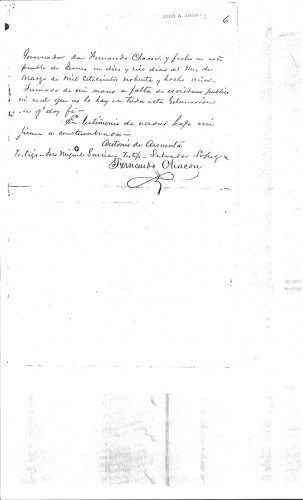 6
Governador Don Fernando Chacon, y fecho en este
pueblo de Jemes en dies y seis dias del Mes de
Marzo de Mil setecientos noventa y hocho años.
Firmado de mi mano a falta de escribano publico
ni real que no lo hay en toda esta Gobernacion
de q.e doy fé—
En testimonio de verdad hago mi
firma acostumbrada—
Antonio de Armenta
Testigo—Jose Miguel Garcia, Testigo—Salvador Lopez
Fernando Chacon